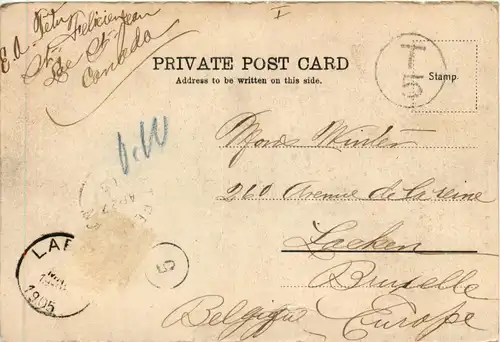 I
E. A. Fetu
St. Felicien
Lac St. Jean
Canada
PRIVATE POST CARD
Address to be written on this side.
T
15
Stamp.
Winter
260 Avenue de la reine
Laeken
Bruxelle
Belgique Europe
LAE
1905
5